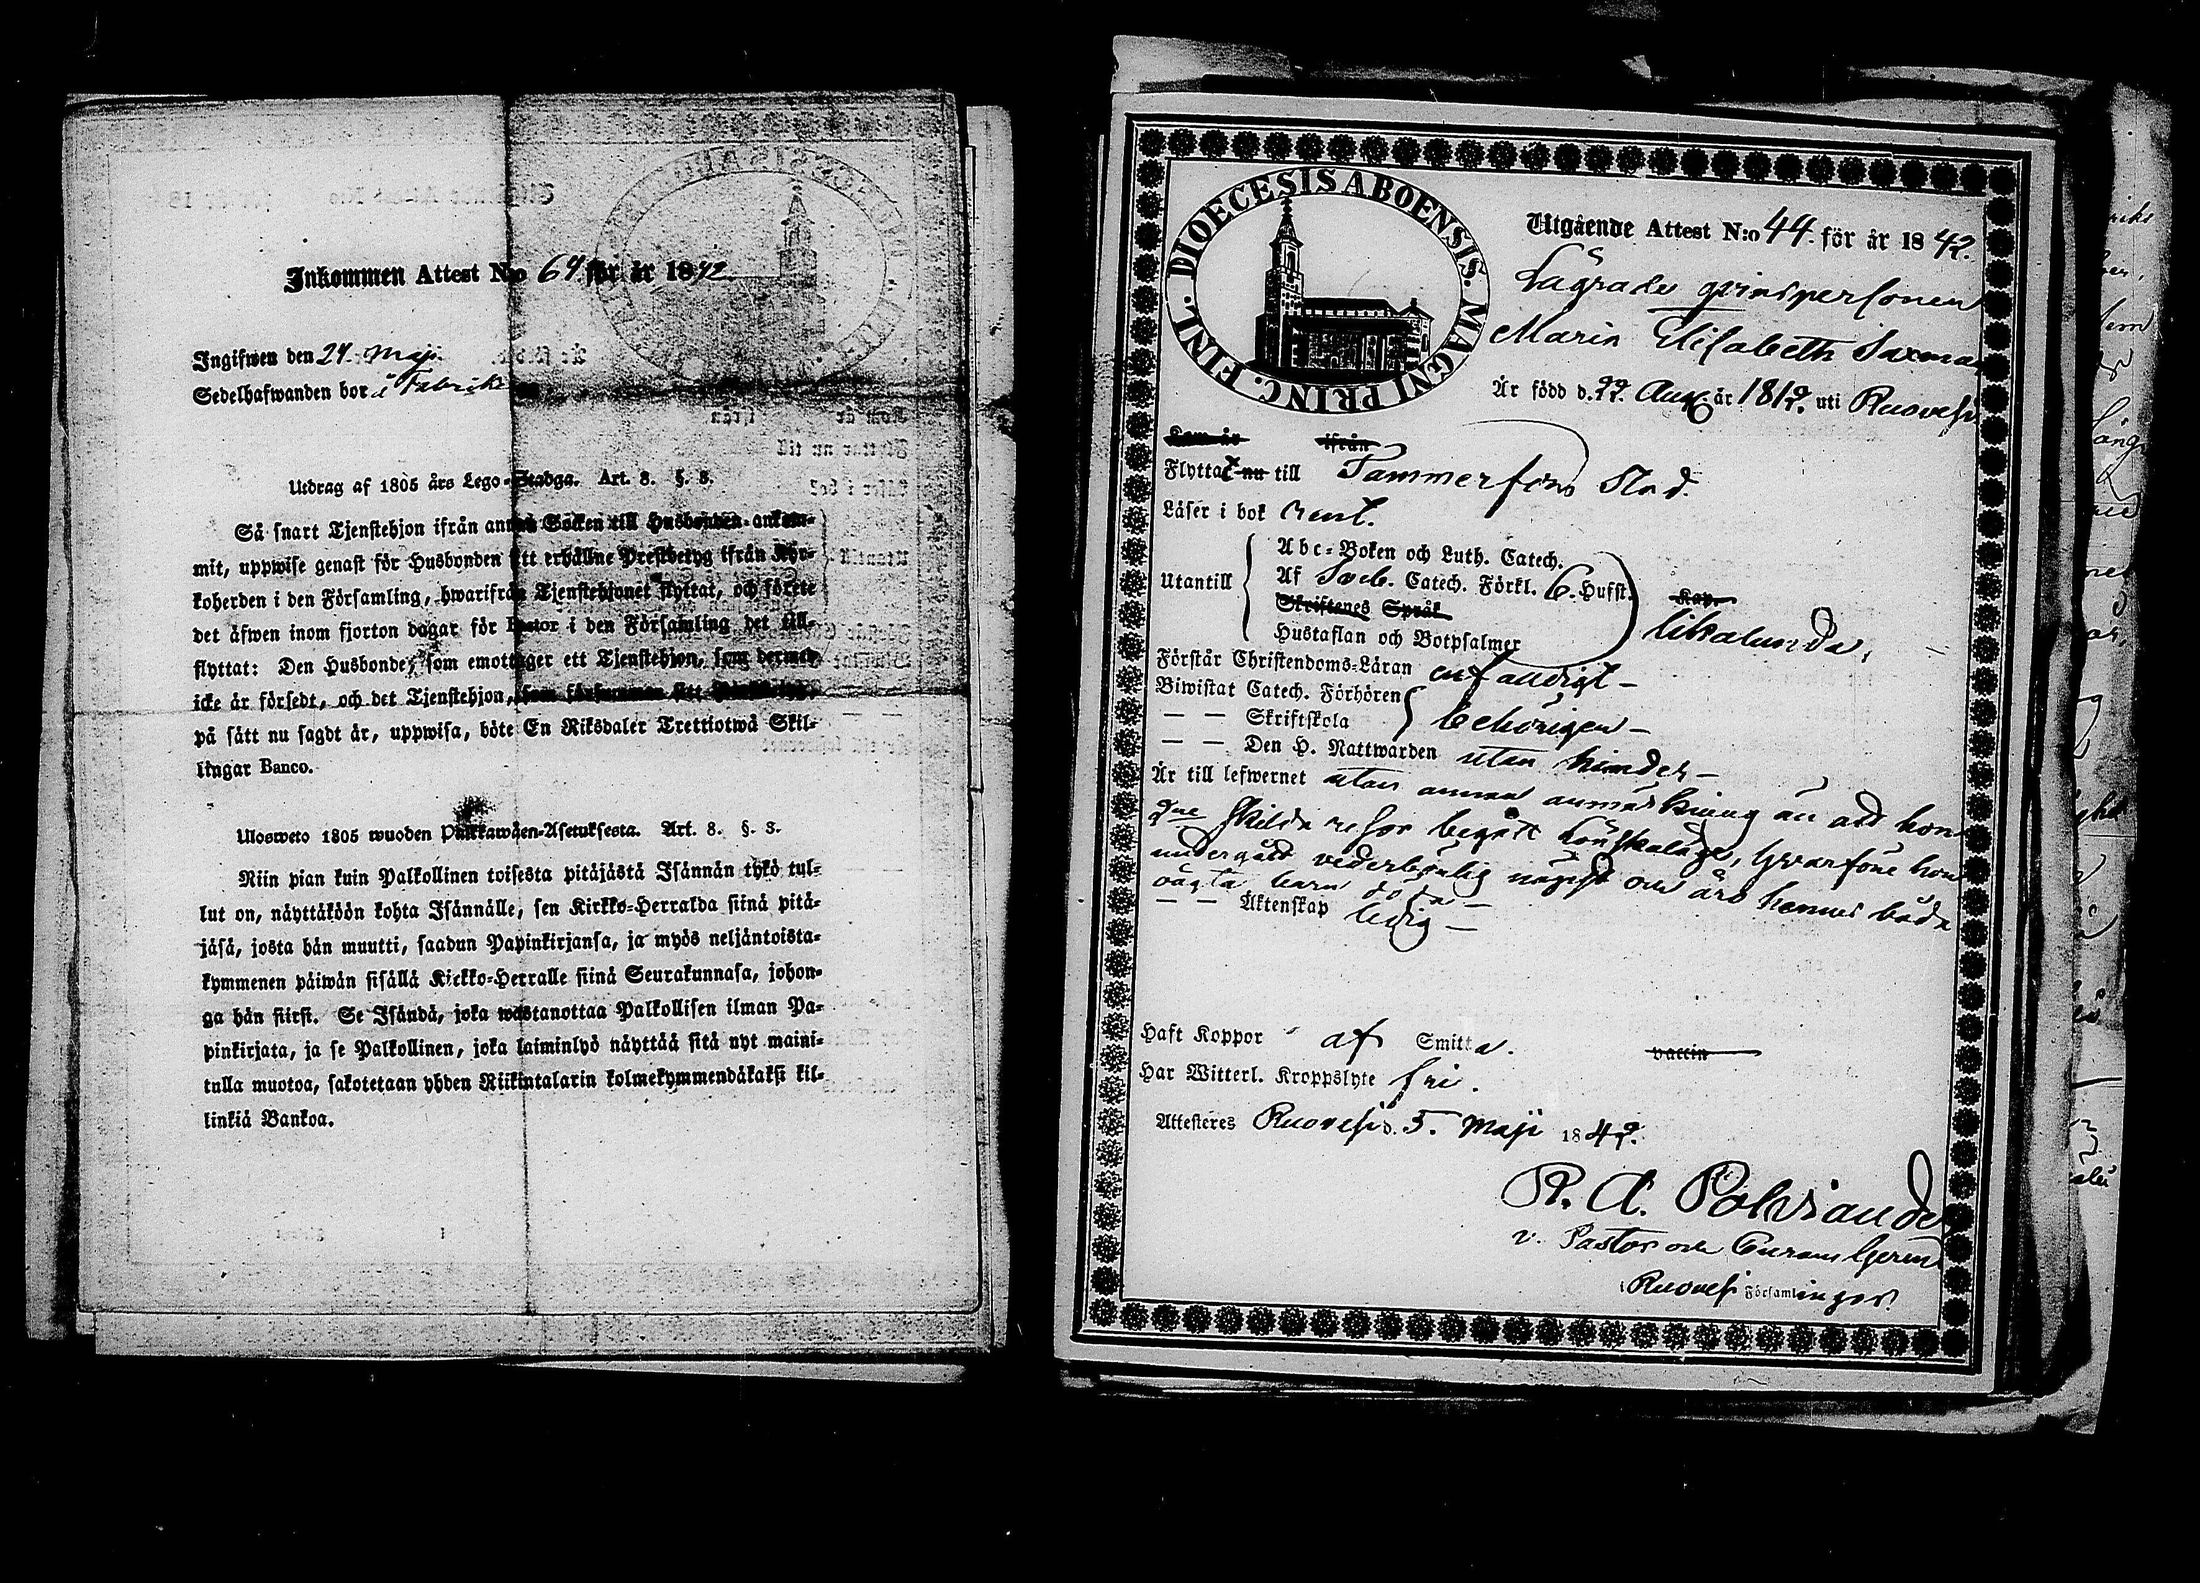 Inkommen Attest N:o 64 för år 1842
Ingifwen den 24. Maji.
Sedelhafwanden bor å Fabriks
Utdrag af 1805 års Lego-Stadga. Art. 8. §. 3.
Så snart Tjenstehjon ifrån annan Socken till Husbonden ankom-
mit, uppwise genast för Husbonden sitt erhållne Prestbetyg ifrån Kyr-
koherden i den Församling, hwarifrån Tjenstehjonet flyttat, och förete
det äfwen inom fjorton dagar för Pastor i den Församling det till-
flyttat: Den Husbonde, som emottager ett Tjenstehjon, som dermed
icke är försedt, och det Tjenstehjon, som försummar sitt
på sätt nu sagdt är, uppwisa, böte En Riksdaler Trettiotwå Skil-
lingar Banco.
Ulosweto 1805 wuoden Palkkawäen-Asetuksesta. Art. 8. §. 3.
Niin pian kuin Palkollinen toisesta pitäjästä Isännän tykö tul-
lut on, näyttäköön kohta Isännälle, sen Kirkko-Herralda siinä pitä-
jäsä, josta hän muutti, saadun Papinkirjansa, ja myös neljäntoista-
kymmenen päiwän sisällä Kirkko-Herralle siinä Seurakunnasa, johon-
ga hän siirsi. Se Isändä, joka wastanottaa Palkollisen ilman Pa-
pinkirjata, ja se Palkollinen, joka laiminlyö näyttää sitä nyt maini-
tulla muotoa, sakotetaan yhden Riikintalarin kolmekymmendäkaksi kil-
linkiä Bankoa.
DIOECESIS ABOENSIS. MAGNI PRINC. FINL.
Utgående Attest N:o 44. för år 1842.
Lägrade qvinspersonen
Maria Elisabeth Saxman
Är född d. 22. Aug. år 1812. uti Ruovesi
Kom år ifrån
Flyttat nu till Tammerfors Stad.
Läser i bok rent.
Utantill
Abc-Boken och Luth. Catech.
Af Sveb. Catech. Förkl. 6. Hufst. Kap.
Skriftenes Språk
Hustaflan och Botpsalmer
likalunda,
Förstår Christendoms-Läran enfaldigt –
Biwistat Catech. Förhören
— — Skriftskola
behörigen –
— — Den H. Nattwarden utan hinder –
Är till lefwernet utan annan anmärkning än att hon
2ne skilda resor begått lönskaläge, hvarföre hon
undergått vederbörlig näpst och äro hennes båda
oägta barn döda –
— — Äktenskap ledig –
Haft Koppor af Smitta. vaccin
Har Witterl. Kroppslyte fri.
Attesteres Ruovesi d. 5. Maji 1842.
v. Pastor och
i Ruovesi Församlingar.